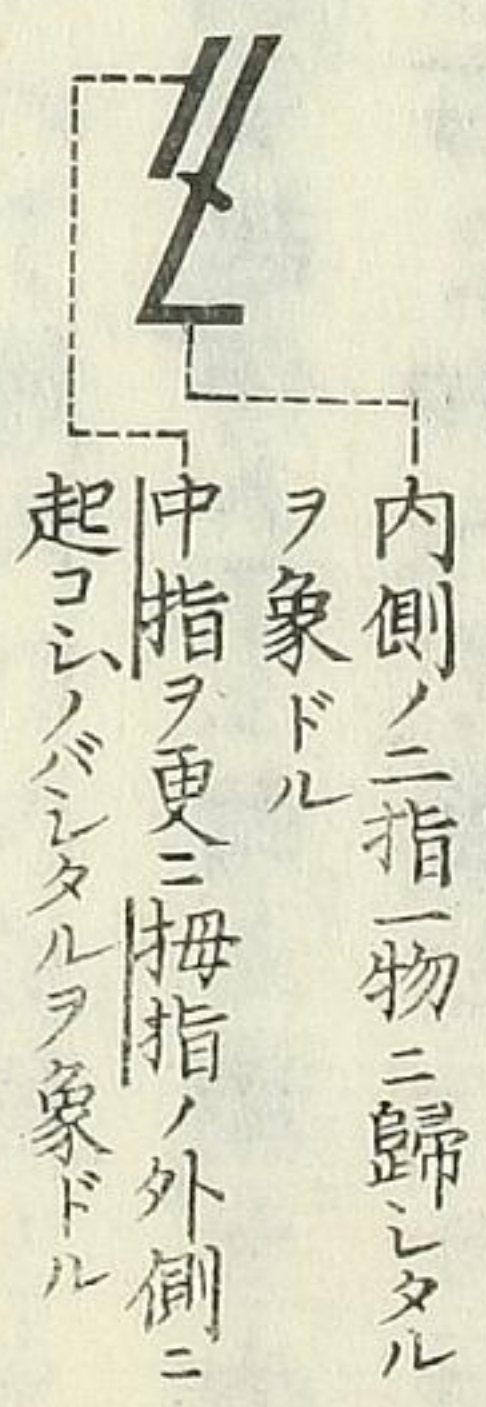 内側ノ二指一物ニ歸シタル
ヲ象ドル
中指ヲ更ニ拇指ノ外側ニ
起コシノバシタルヲ象ドル